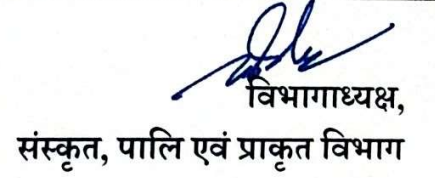 विभागाध्यक्ष,
संस्कृत, पालि एवं प्राकृत विभाग